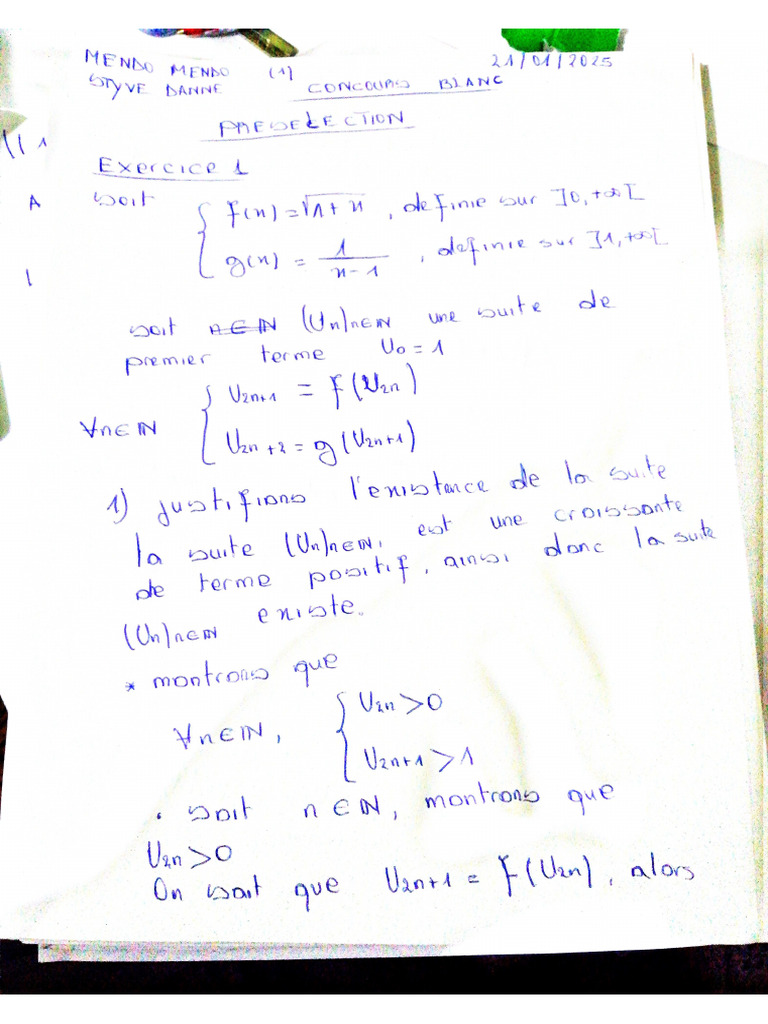 MENDO MENDO (1) 21/01/2025
STYVE DANNE CONCOURS BLANC
PRESELECTION
Exercice 1
A
soit { f(x) = √1+x , definie sur ]0, +∞[
g(x) = 1/(x-1) , definie sur ]1, +∞[
soit n∈ℕ (Un)n∈ℕ une suite de
premier terme U0 = 1
∀n∈ℕ { U2n+1 = f(U2n)
U2n+2 = g(U2n+1)
1) justifions l'existance de la suite
la suite (Un)n∈ℕ, est une croissante
de terme positif, ainsi donc la suite
(Un)n∈ℕ existe.
* montrons que
∀n∈ℕ, { U2n>0
U2n+1>1
• soit n∈ℕ, montrons que
U2n>0
On sait que U2n+1 = f(U2n), alors